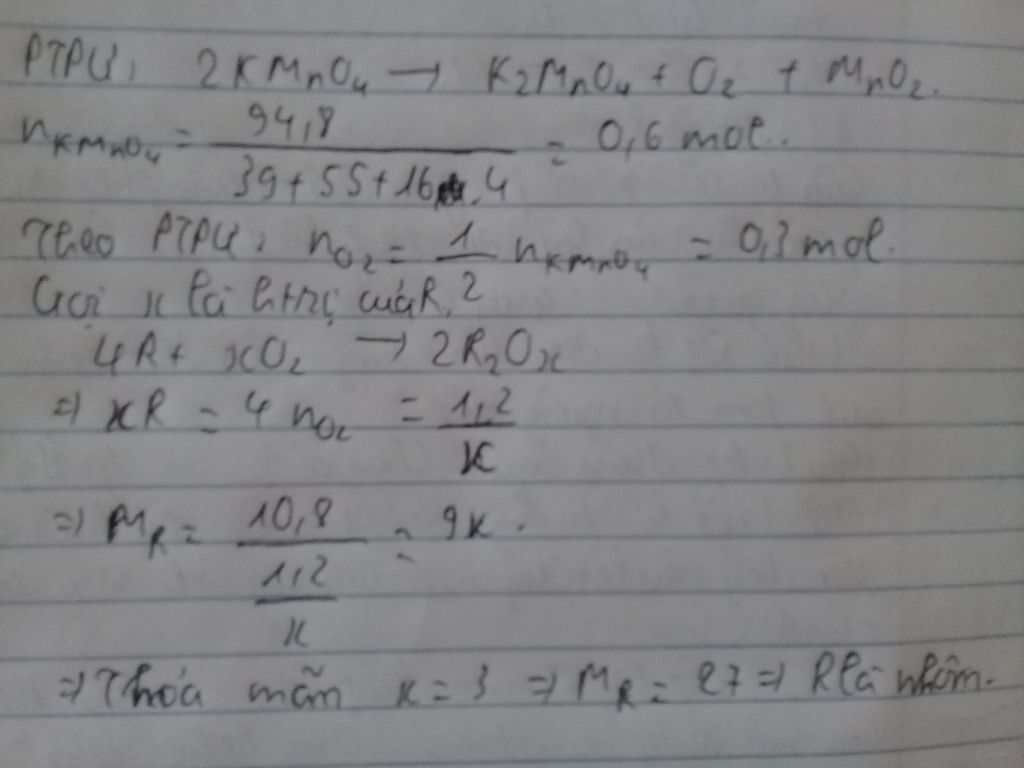 PTPƯ: 2KMnO4 → K2MnO4 + O2 + MnO2.
nKMnO4 = 94,8 / (39+55+16.4) = 0,6 mol.
Theo PTPƯ: nO2 = 1/2 nKMnO4 = 0,3 mol.
Gọi x là htrị của R,
4R + xO2 → 2R2Ox
=> xR = 4 nO2 = 1,2/x
=> MR = 10,8 / (1,2/x) = 9x.
=> Thỏa mãn x = 3 => MR = 27 => R là nhôm.